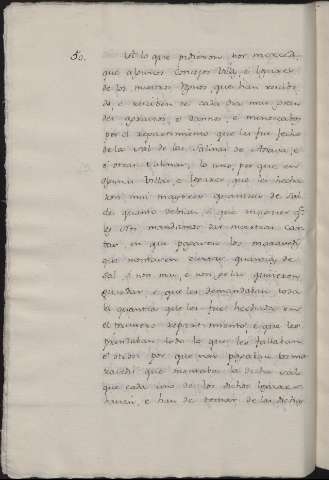 50. Vt lo que pidieron, por merced,
que algunos Concejos Villas, e lugares
de los nuestros Rgnos, que han recibido
do, e reciben de cada dia muy gran
des agravios, e daños, e menoscabos
por el repartimiento que les fue fecho
de la sal de las salinas de Añana, e
otras salinas, lo uno, por que en
algunas Villas, e lugares, que les hecha
ron mui mayores quantias de sal
de quanto debian, o que
les Nos mandamos dar nuestras Car
tas en que pagaren los maravedis
que montaren en las quantias de
sal, e non mas, e non se las quisieron
guardar, e que les demandaban toda
la quantia que les fue hechada en
el primero repartimiento, e que les
prendaban todo lo que les fallaban
Otrosi por que non pagaban los ma
ravedis que montaba la dicha sal
que cada uno de los dichos lugares
havien, e han de tomar de las dichas